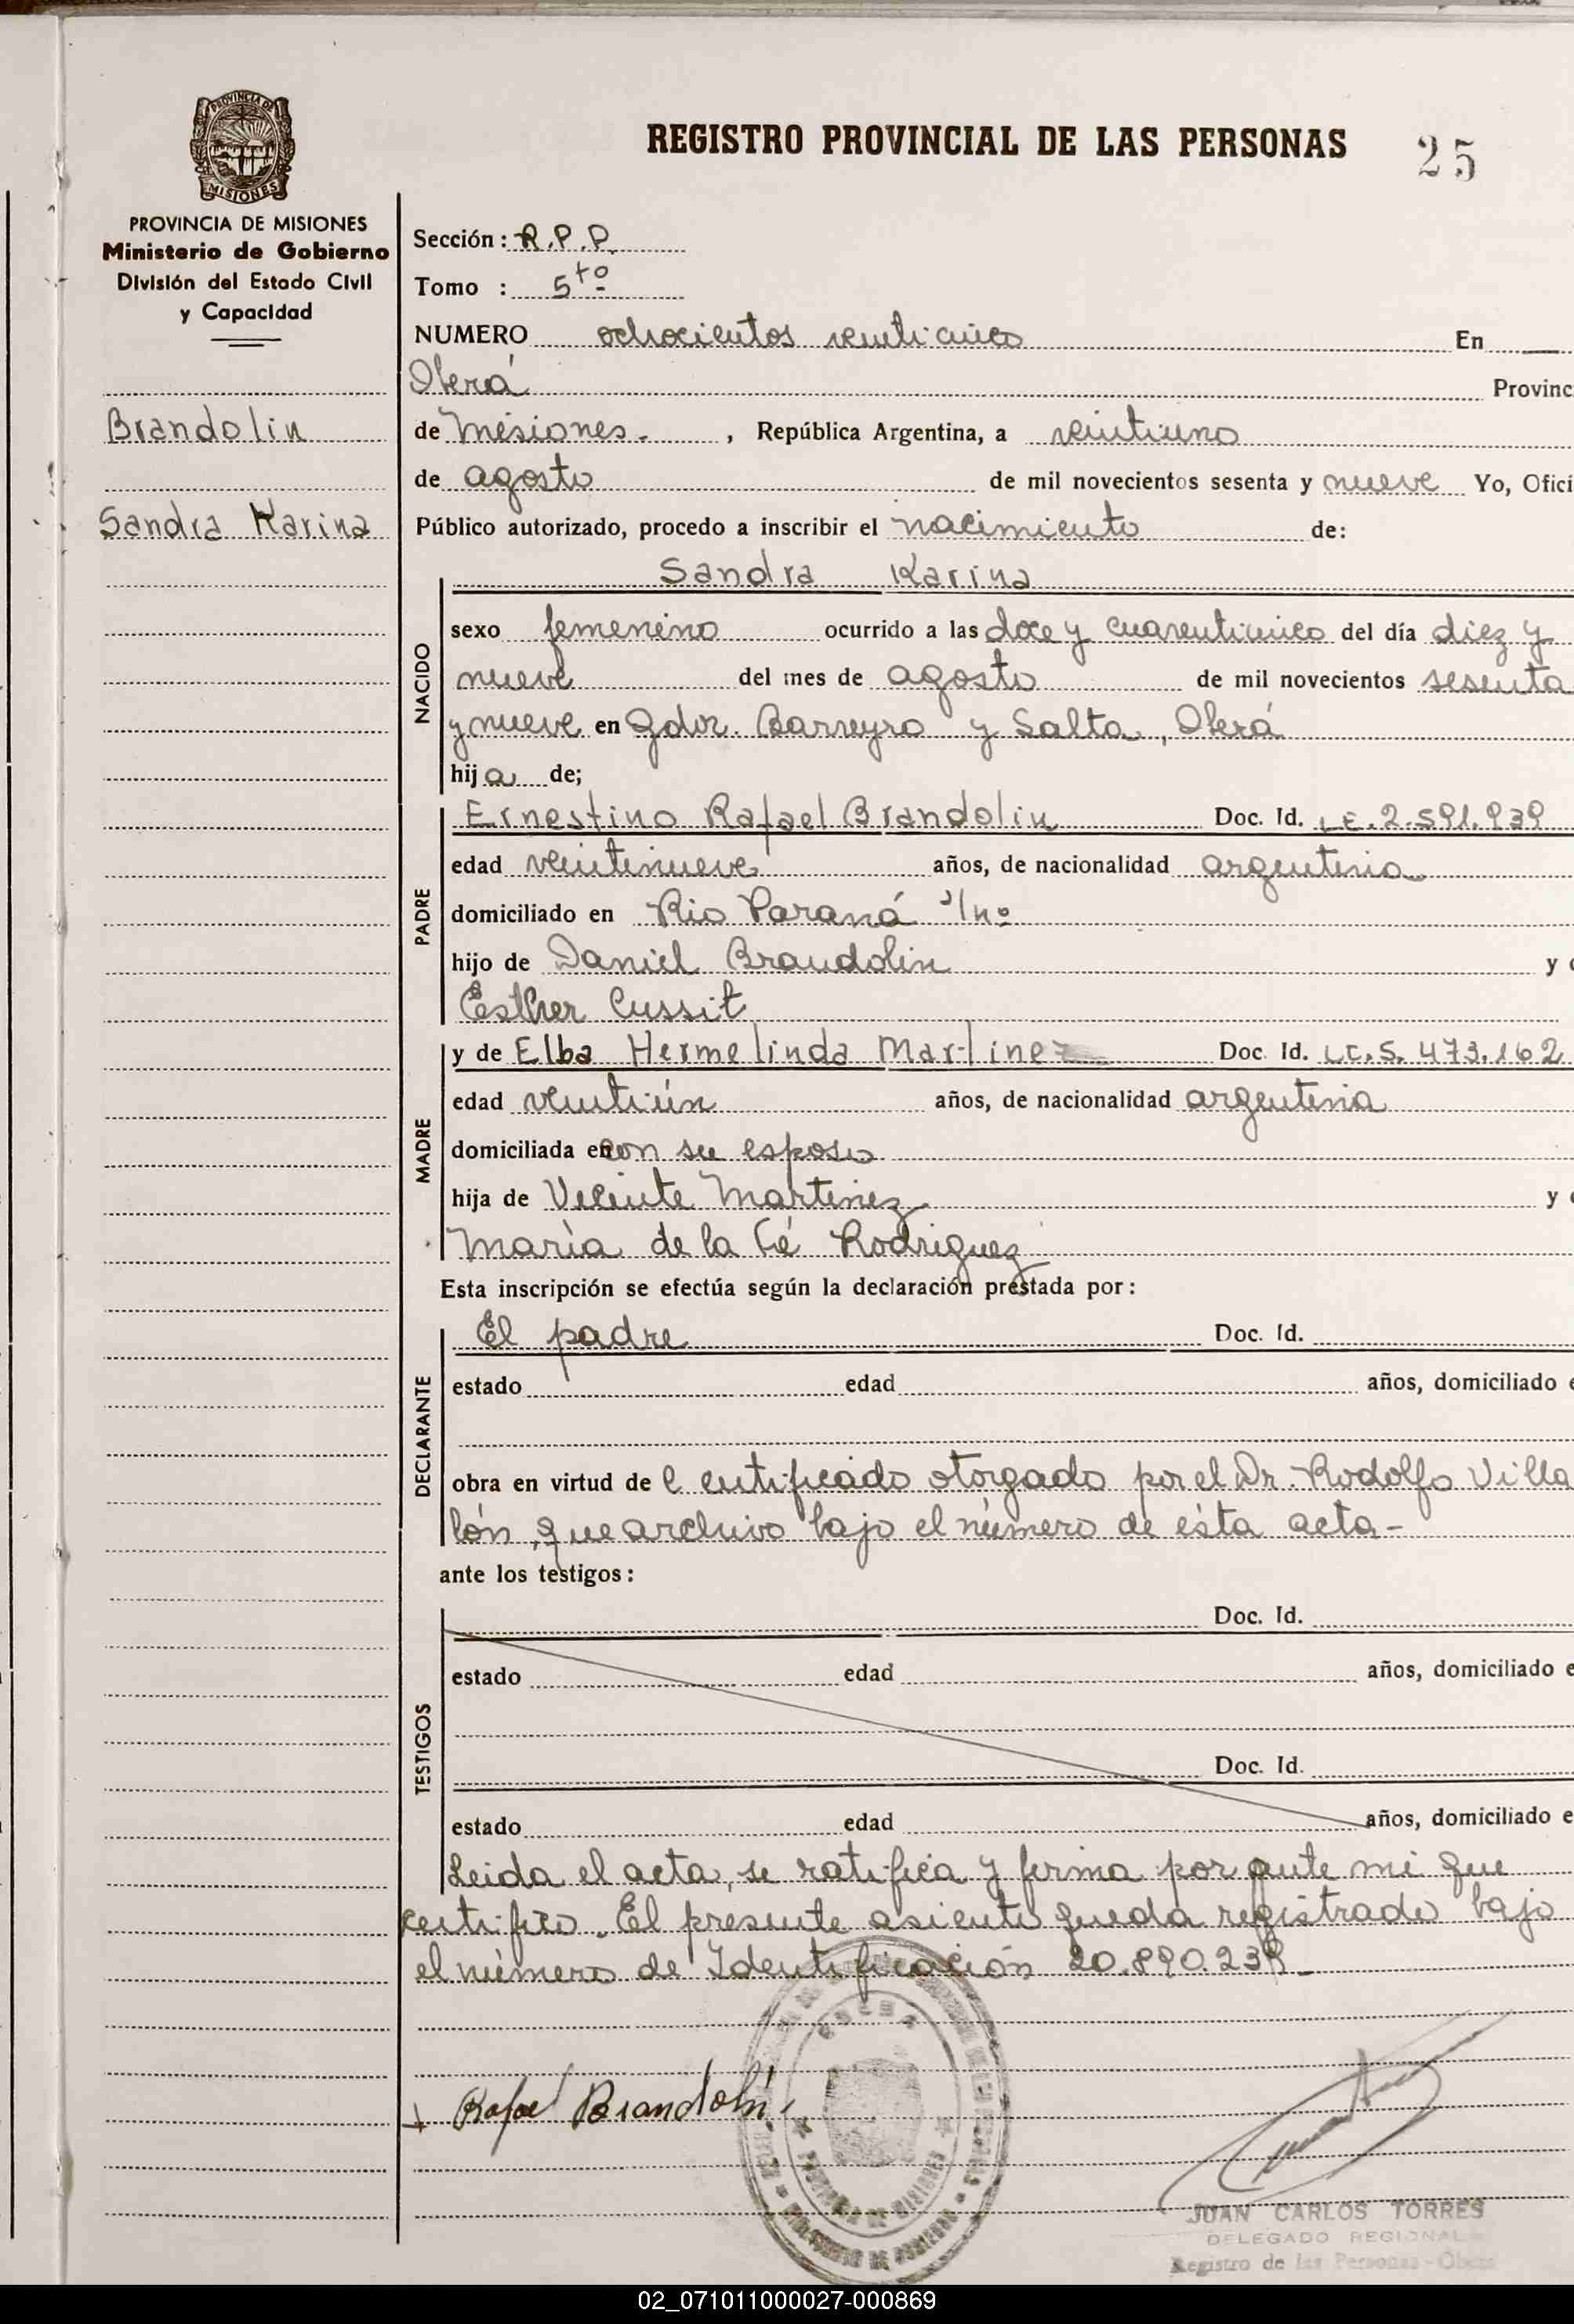 REGISTRO PROVINCIAL DE LAS PERSONAS
25
PROVINCIA DE MISIONES
PROVINCIA DE MISIONES
Ministerio de Gobierno
División del Estado Civil
y Capacidad
Brandolin
Sandra Karina
Sección: R.P.P.
Tomo : 5to
NUMERO ochocientos veinticinco En
Oberá Provinc
de Misiones. , República Argentina, a veintiuno
de agosto de mil novecientos sesenta y nueve Yo, Ofici
Público autorizado, procedo a inscribir el nacimiento de:
Sandra Karina
NACIDO
sexo femenino ocurrido a las doce y cuarenticinco del día diez y
nueve del mes de agosto de mil novecientos sesenta
y nueve en Gdor. Barreyro y Salta, Oberá
hija de;
PADRE
Ernestino Rafael Brandolin Doc. Id. LE.2.591.939
edad veintinueve años, de nacionalidad argentina
domiciliado en Rio Paraná s/nº
hijo de Daniel Brandolin y
Esther Cussit
MADRE
y de Elba Hermelinda Martinez Doc. Id. LC.5.473.162
edad veintiún años, de nacionalidad argentina
domiciliada en con su esposo
hija de Vicente Martinez y
María de la Fé Rodriguez
Esta inscripción se efectúa según la declaración prestada por:
DECLARANTE
El padre Doc. Id.
estado edad años, domiciliado e
obra en virtud de Certificado otorgado por el Dr. Rodolfo Villa
lón, que archivo bajo el número de ésta acta-
ante los testigos:
TESTIGOS
Doc. Id.
estado edad años, domiciliado e
Doc. Id.
estado edad años, domiciliado e
Leida el acta, se ratifica y firma por ante mi que
certifico. El presente asiento queda registrado bajo
el número de Identificación 20.890.239
Rafael Brandolin
PROVINCIA DE MISIONES
MINISTERIO DE GOBIERNO
JUAN CARLOS TORRES
DELEGADO REGIONAL
Registro de las Personas - Oberá
02_071011000027-000869